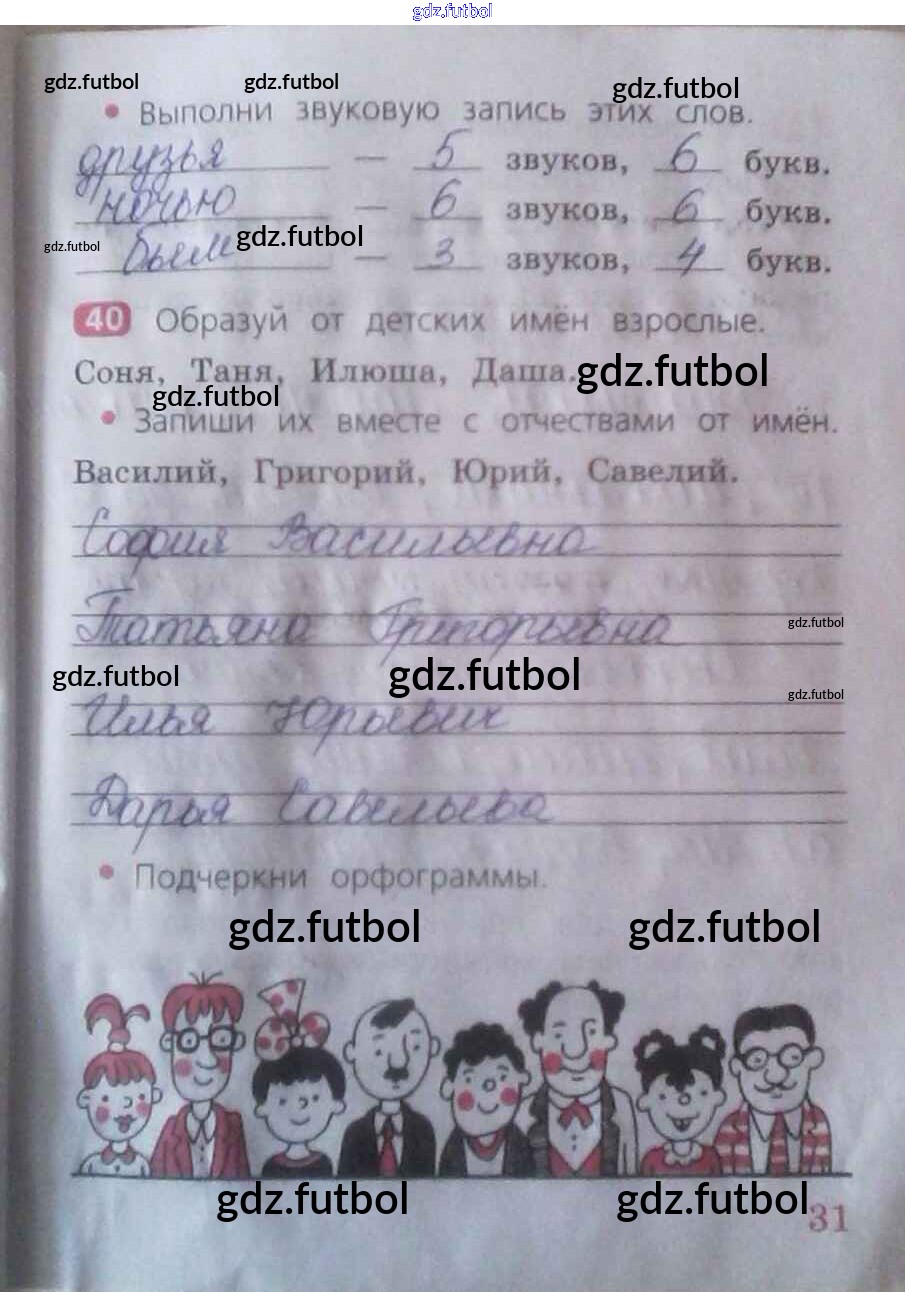 gdz.futbol
gdz.futbol gdz.futbol gdz.futbol
• Выполни звуковую запись этих слов.
друзья — 5 звуков, 6 букв.
ночью — 6 звуков, 6 букв.
gdz.futbol gdz.futbol
бьем — 3 звуков, 4 букв.
40 Образуй от детских имён взрослые.
Соня, Таня, Илюша, Даша.
gdz.futbol
gdz.futbol
• Запиши их вместе с отчествами от имён.
Василий, Григорий, Юрий, Савелий.
София Васильевна
Татьяна Григорьевна
gdz.futbol
gdz.futbol gdz.futbol
gdz.futbol
Илья Юрьевич
Дарья Савельева
• Подчеркни орфограммы.
gdz.futbol gdz.futbol
gdz.futbol gdz.futbol
31